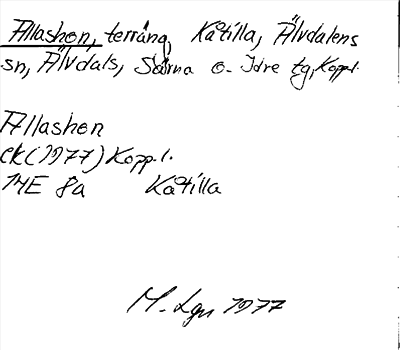 Allashon, terräng, Kåtilla, Älvdalens
sn, Älvdals, Särna o. Idre tg, Koppl.
Allashon
ek (1977) Koppl.
14E 8a Kåtilla
M. Lgn 1977